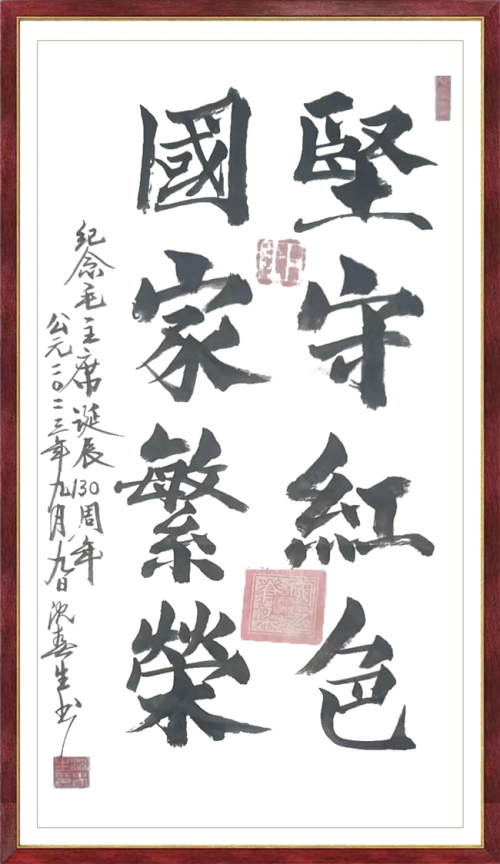 堅守紅色
國家繁榮
紀念毛主席誕辰130周年
公元二〇二三年九月九日沈春生书